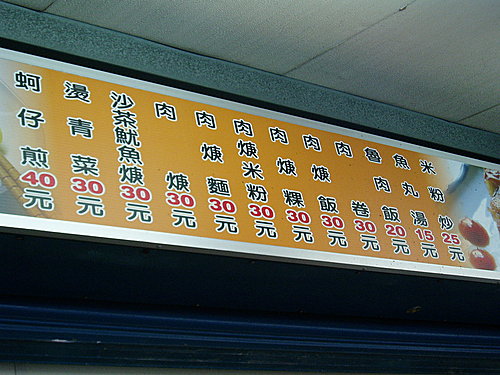 蚵仔煎40元
燙青菜30元
沙茶魷魚焿30元
肉焿30元
肉焿麵30元
肉焿米粉30元
肉焿粿30元
肉焿飯30元
肉卷30元
魯肉飯20元
魚丸湯15元
米粉炒25元